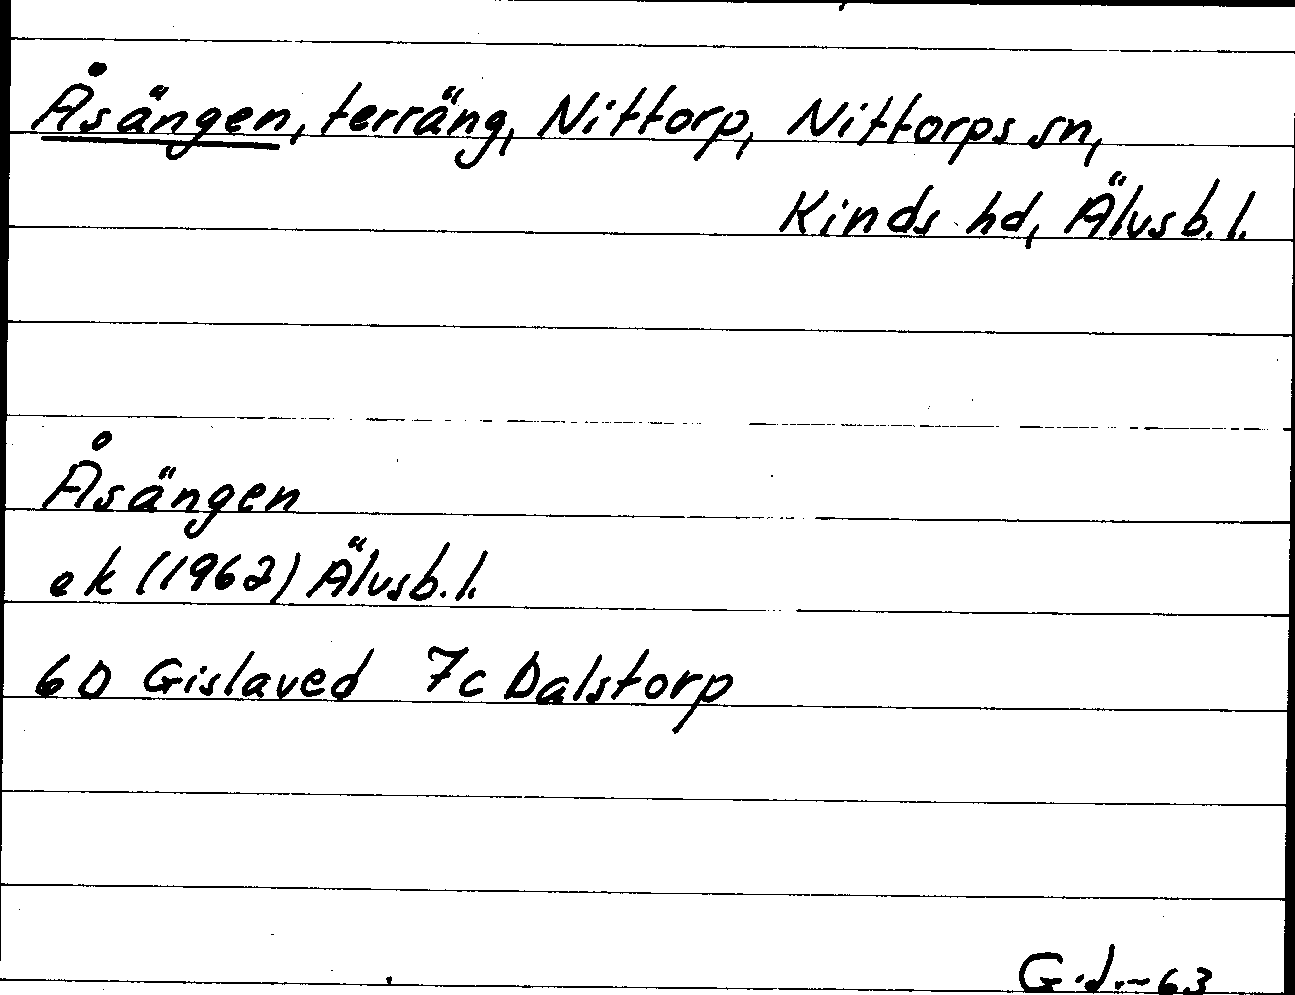 Åsängen, terräng, Nittorp, Nittorps sn,
Kinds hd, Älvsb.l.
Åsängen
ek (1962) Älvsb.l.
6D Gislaved 7c Dalstorp
G.J.-63